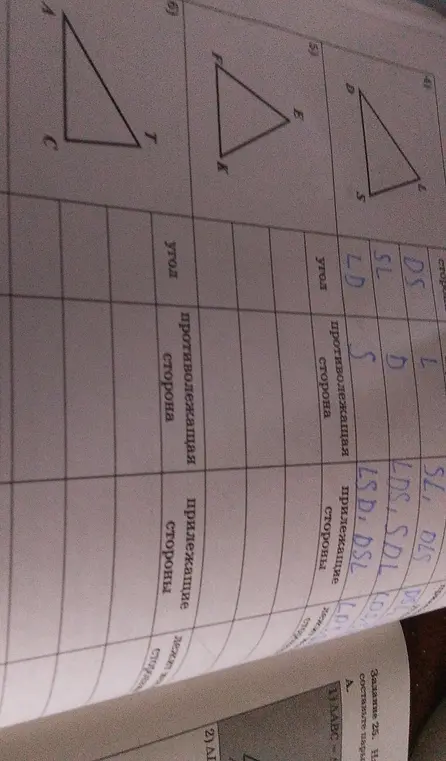 4)
L
D
S
DS L SL, DLS
SL D LDS, SDL
LD S LSD, DSL
5)
E
F
K
угол противолежащая сторона прилежащие стороны
6)
T
A
C
угол противолежащая сторона прилежащие стороны
Задание 25.
составьте пары
А.
1) ΔABC
2) Δ